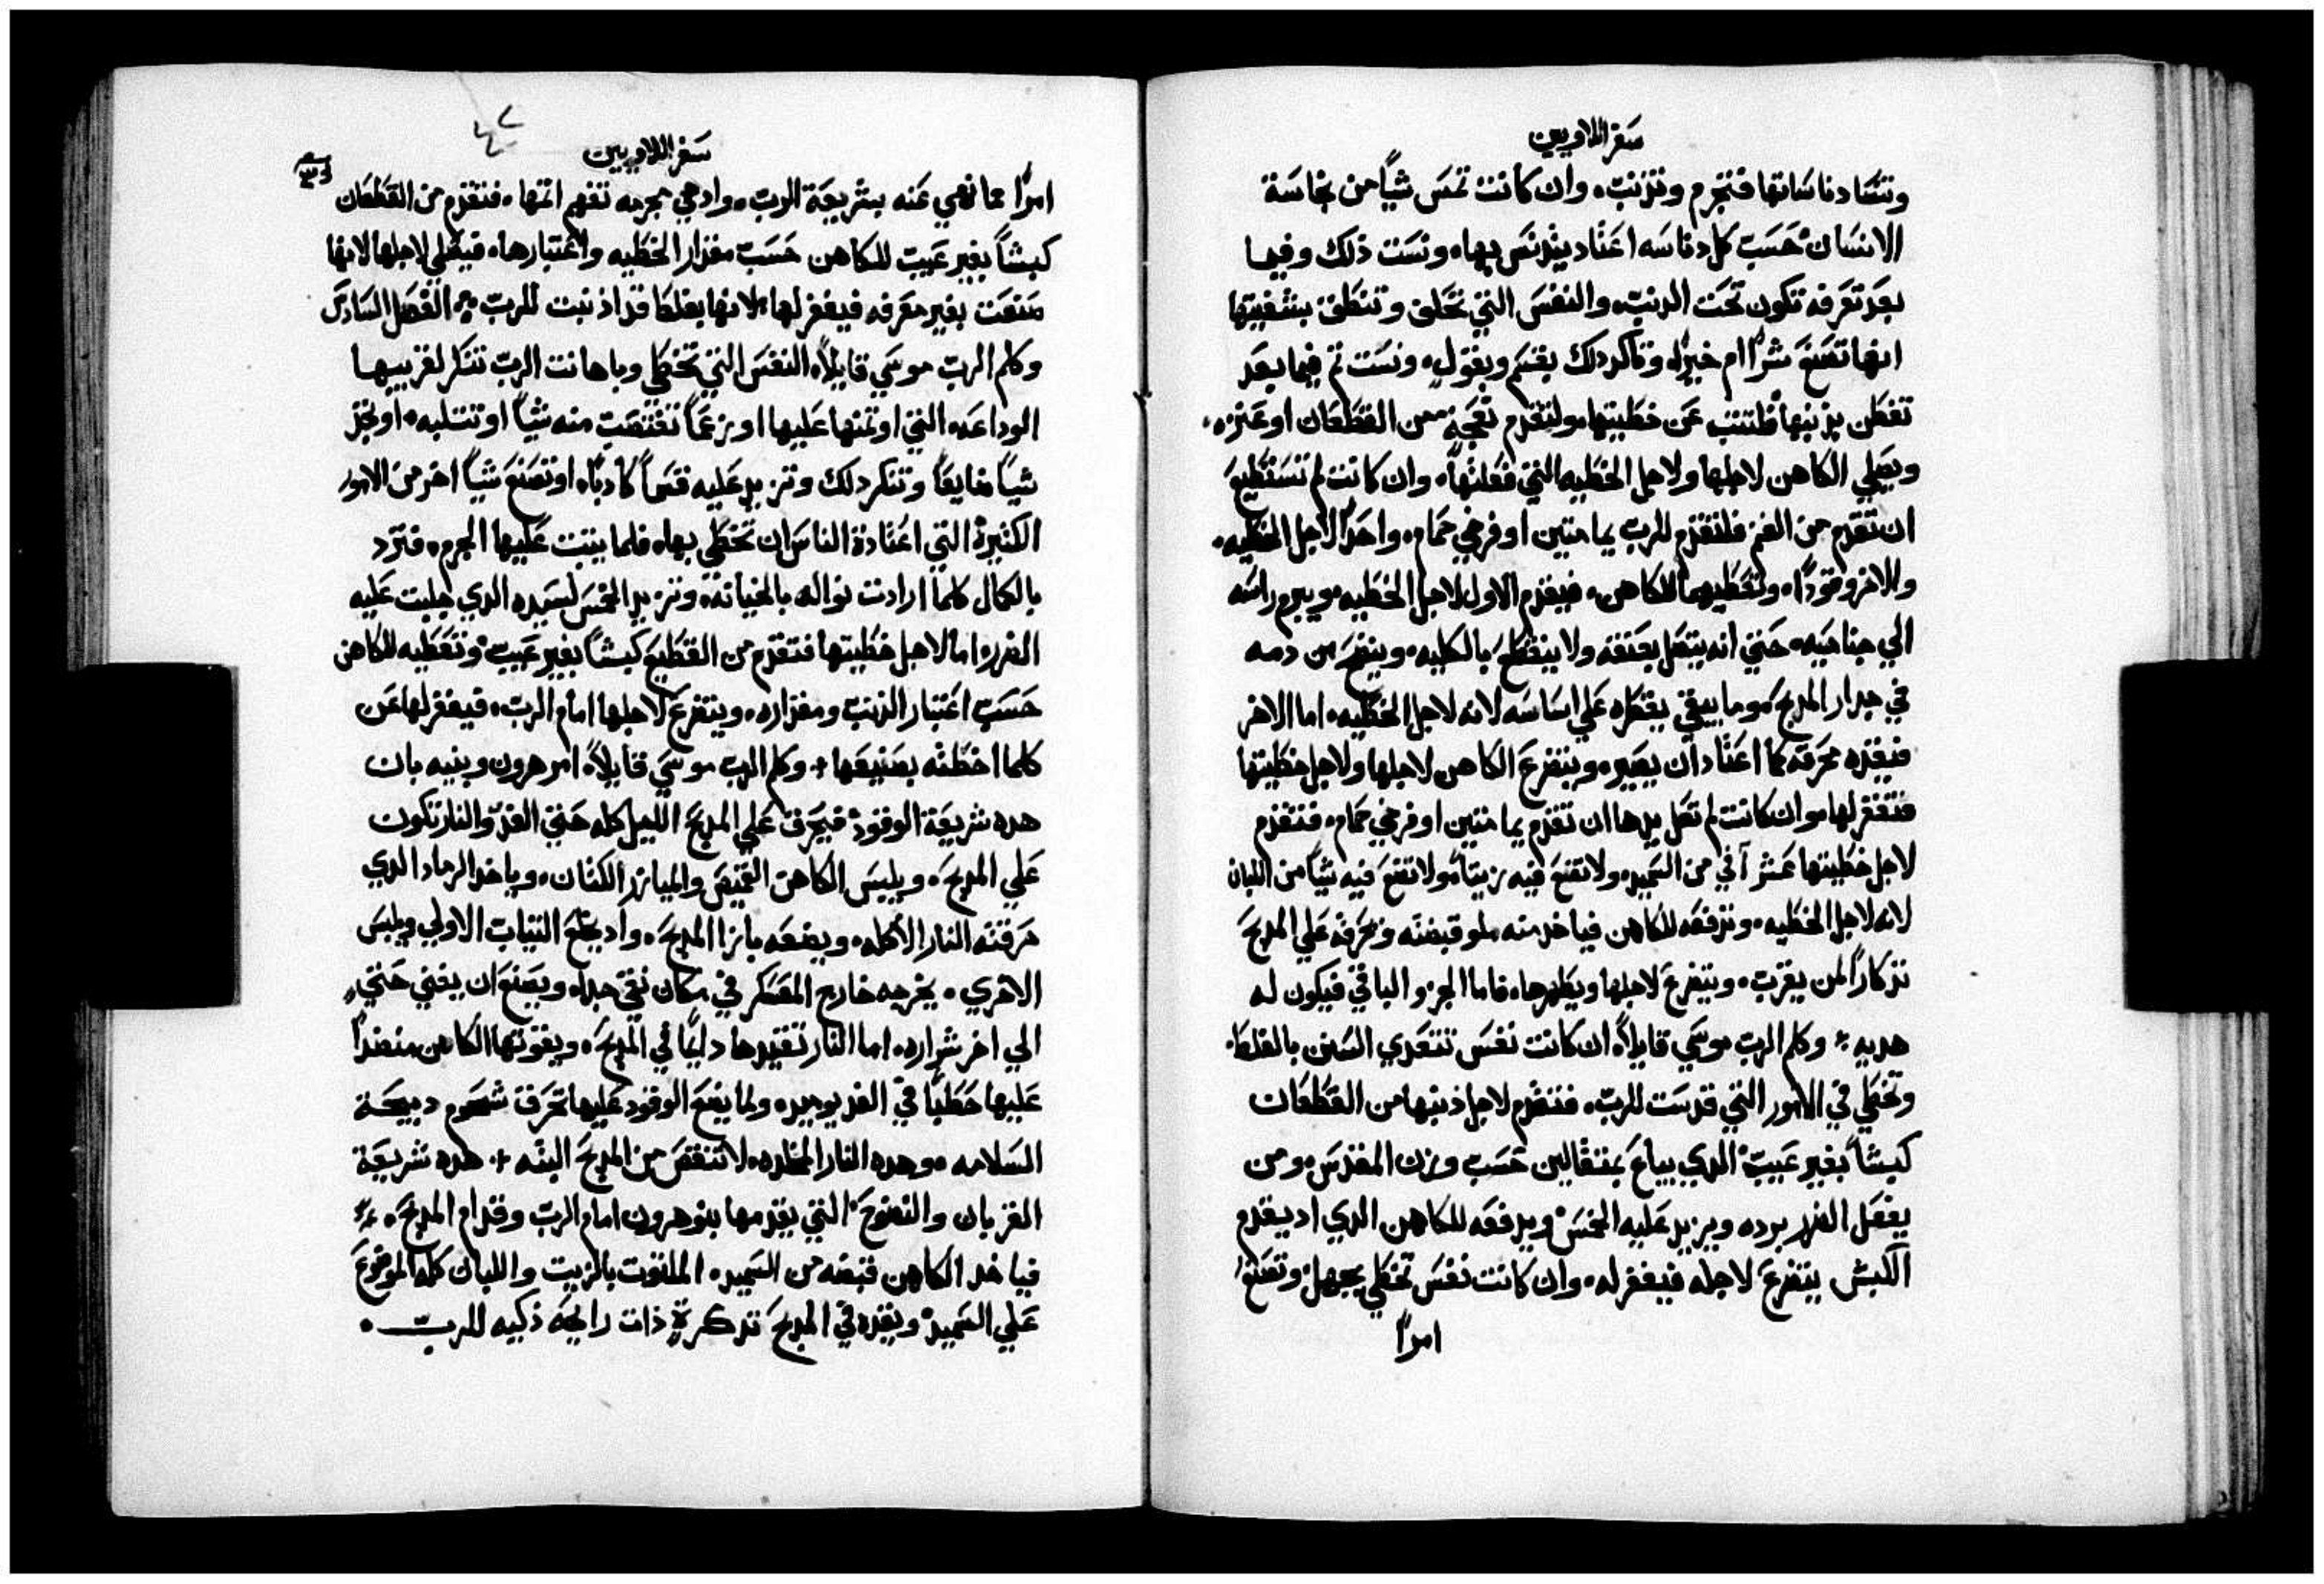 سفر اللاويين
وتنسا دناساتها فتجرم وتذنب. وان كانت تمس شياً من نجاسة
الانسان حسب كل دناسه اعتاد يتدنس بها. ونست ذلك وفيما
بعد تعرفه تكون تحت الدنب. والنفس التي تحلف وتنطق بشفتيها
انها تصنع شراً ام خيراً. وتاكد دلك بقسم وبقول. ونست تم فيما بعد
تفطن بذنبها فلتتب عن خطيتها. ولتقدم نعجة من القطعان او عنزه.
ويصلي الكاهن لاجلها ولاجل الخطيه التي فعلتها. وان كانت لم تستطيع
ان تقدم من الغنم فلتقدم للرب يمامتين او فرخي حمام. واحداً لاجل الخطيه.
والاخر وقوداً. وتعطيهما للكاهن. فيقدم الاول لاجل الخطيه ويبرم راسه
الي جناحيه. حتي انه يتصل بعنقه ولا ينقطع بالكليه. وينضح من دمه
في جدار المدبح وما يبقي يقطره علي اساسه لانه لاجل الخطيه. اما الاخر
فيقده محرقه كما اعتاد ان يصير. ويتضرع الكاهن لاجلها ولاجل خطيتها
فتغفر لها. وان كانت لم تصل يدها ان تقدم يمامتين او فرخي حمام. فتقدم
لاجل خطيتها عشر آفي من السميد. ولا تضع فيه زيتاً ولا تضع فيه شياً من اللبان
لانه لاجل الخطيه. وتدفعه للكاهن فياخد منه ملو قبضته ويحرقه علي المدبح
تذكاراً لمن يقرب. ويتضرع لاجلها ويطهرها. فاما الجزو الباقي فيكون له
هديه. وكلم الرب موسي قايلاً. ان كانت نفس تتعدي السنن بالغلط.
وتخطي في الامور التي قدست للرب. فتقدم لاجل ذنبها من القطعان
كبشاً بغير عيب الدي يباع بمتقالين حسب وزن المقدس. ومن
يفعل الضرر يرده ويزيد عليه الخمس ويدفعه للكاهن الدي اد يقدم
الكبش يتضرع لاجله فيغفر له. وان كانت نفس تخطي بجهل وتصنع
امراً
سفر اللاويين
امراً مما نهي عنه بشريعة الرب. واد هي مجرمه تفهم اتمها. فتقدم من القطعان
كبشاً بغير عيب للكاهن حسب مقدار الخطيه واعتبارها. فيصلي لاجلها لانها
صنعت بغير معرفه فيغفر لها. لانها بغلط قد اذنبت للرب. الفصل السادس
وكلم الرب موسي قايلاً. النفس التي تخطي وباهانت الرب تنكر لقريبها
الوداعه التي اوتمنها عليها او بزعماً تغتصب منه شياً او تسلبه. او تجد
شياً ضايعاً وتنكر دلك وتزيد عليه قسماً كادباً. او تصنع شياً اخر من الامور
الكتيرة التي اعتادة الناس ان تخطي بها. فلما يتبت عليها الجرم. فترد
بالكمال كلما ارادت نواله بالخيانه. وتزيد الخمس لسيده الدي جلبت عليه
الضرر. اما لاجل خطيتها فتقدم من القطيع كبشاً بغير عيب وتعطيه للكاهن
حسب اعتبار الذنب ومقداره. ويتضرع لاجلها امام الرب. فيغفر لها عن
كلما اخطته بصنيعها. وكلم الرب موسي قايلاً. امر هرون وبنيه بان
هده شريعة الوقود فيحرق علي المدبح الليل كله حتي الغد والنار تكون
علي المدبح. ويلبس الكاهن القميص والميازر الكتان. وياخد الرماد الدي
حرقته النار الاكله. ويضعه بازا المدبح. واد يخلع التياب الاولي ويلبس
الاخري. يخرجه خارج المعسكر في مكان نقي جداً. ويصنع ان يفني حتي
الي اخر شراره. اما النار تقيدها دايماً في المدبح. ويقوتها الكاهن منضداً
عليها حطباً في الغد يومياً. ولما يضع الوقود عليها تحرق شحوم دبيحة
السلامه. وهده النار المخلده. لا تنقص من المدبح البته. هده شريعة
القربان والنضوح التي يقدمها بنو هرون امام الرب وقدام المدبح.
فياخد الكاهن قبضه من السميد. الملتوت بالزيت واللبان كله الموضوع
علي السميد ويقده في المدبح تدكرة ذات رايحه ذكيه للرب.